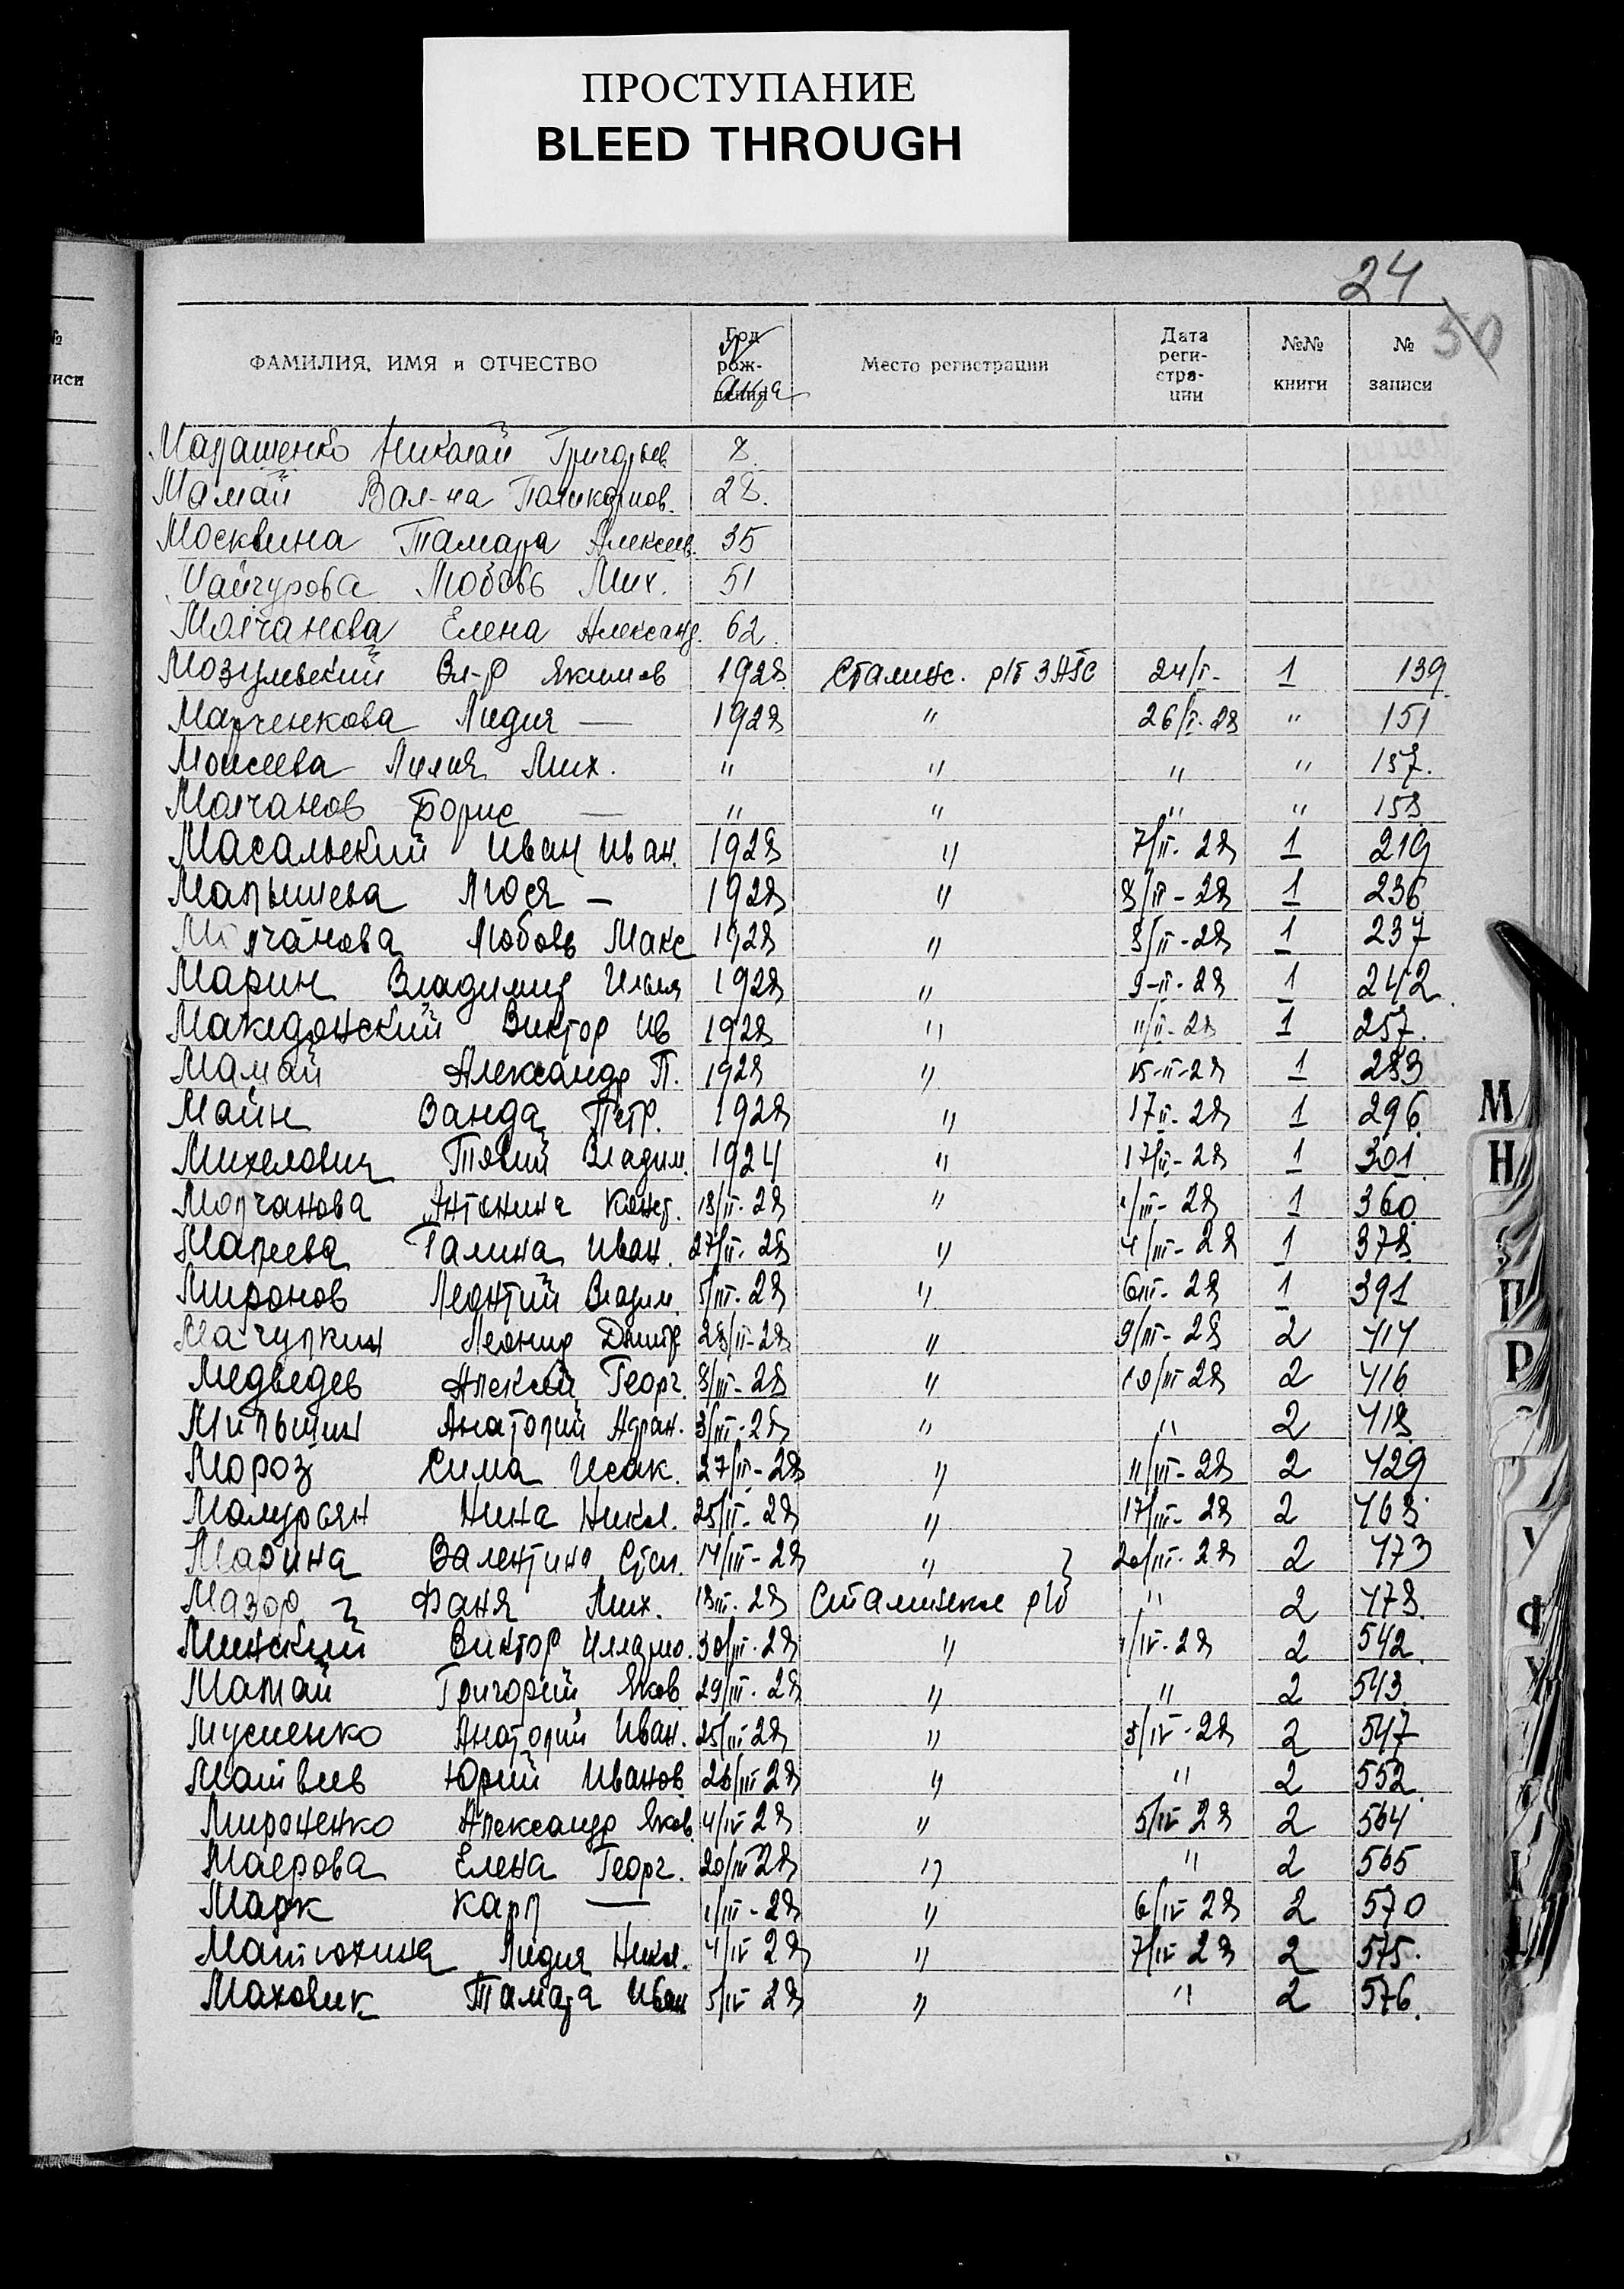 ПРОСТУПАНИЕ
BLEED THROUGH
24
50
№ писи
ФАМИЛИЯ, ИМЯ и ОТЧЕСТВО Год рож- дения Место регистрации Дата реги- стра- ции №№ книги № записи
Марашенко Николай Григорьев 8
Мамай Вал-на Поликарпов. 28.
Москвина Тамара Алексеев. 35
Любовь Мих. 51
Молчанова Елена Александ. 62.
Вл-р Якимов 1928 Сталинс. р/б ЗАГС 24/I- 1 139
Марченкова Лидия — 1928 " 26/I-28 " 151
Моисеева Лилия Мих. " " " " 157.
Молчанов Борис — " " " " 158
Масальский Иван Иван. 1928 " 7/II-28 1 219
Малышева Люся — 1928 " 8/II-28 1 236
Молчанова Любовь Макс 1928 " 8/II-28 1 237
Марин Владимир Ильи 1928 " 9-II-28 1 242
Македонский Виктор Ив 1928 " 11/II-28 1 257.
Мамай Александр П. 1928 " 15-II-28 1 283
Майн Ванда Петр. 1928 " 17II-28 1 296
Михелович Владим. 1924 " 17/II-28 1 301
Молчанова Антонина Конст. 18/II-28 " 1/III-28 1 360
Галина Иван. 27/II-28 " 4/III-28 1 378
Миронов Леонтий Владим. 5/III-28 " 6III-28 1 391
Мачулкин Леонид Дмитр 28/II-28 " 9/III-28 2 414
Медведев Алексей Георг. 8/III-28 " 10/III 28 2 416
Мильшин Анатолий 3/III-28 " " 2 418
Мороз Сима Исак. 27/II-28 " 11/III-28 2 429
Нина Никол. 25/II-28 " 17/III-28 2 468
Марина Валентина 14/III-28 " 20/III-28 2 473
Мазор Фаня Мих. 18III-28 Сталинское р/б " 2 478.
Минский Виктор Илларио. 30/III-28 " 1/IV-28 2 542
Мамай Григорий Яков 29/III-28 " " 2 543
Мусиенко Анатолий Иван. 25/III 28 " 3/IV-28 2 547
Матвеев Юрий Иванов 26/III 28 " " 2 552
Мироненко Александр Яков 4/IV 28 " 5/IV 28 2 564
Маерова Елена Георг. 20/III 28 " " 2 565
Марк Карл — 1/III-28 " 6/IV 28 2 570
Матюхина Лидия Никол. 4/IV 28 " 7/IV 28 2 575.
Маховик Тамара Иван 5/IV 28 " " 2 576.
М
Н
П
Р
У
Ф
Х